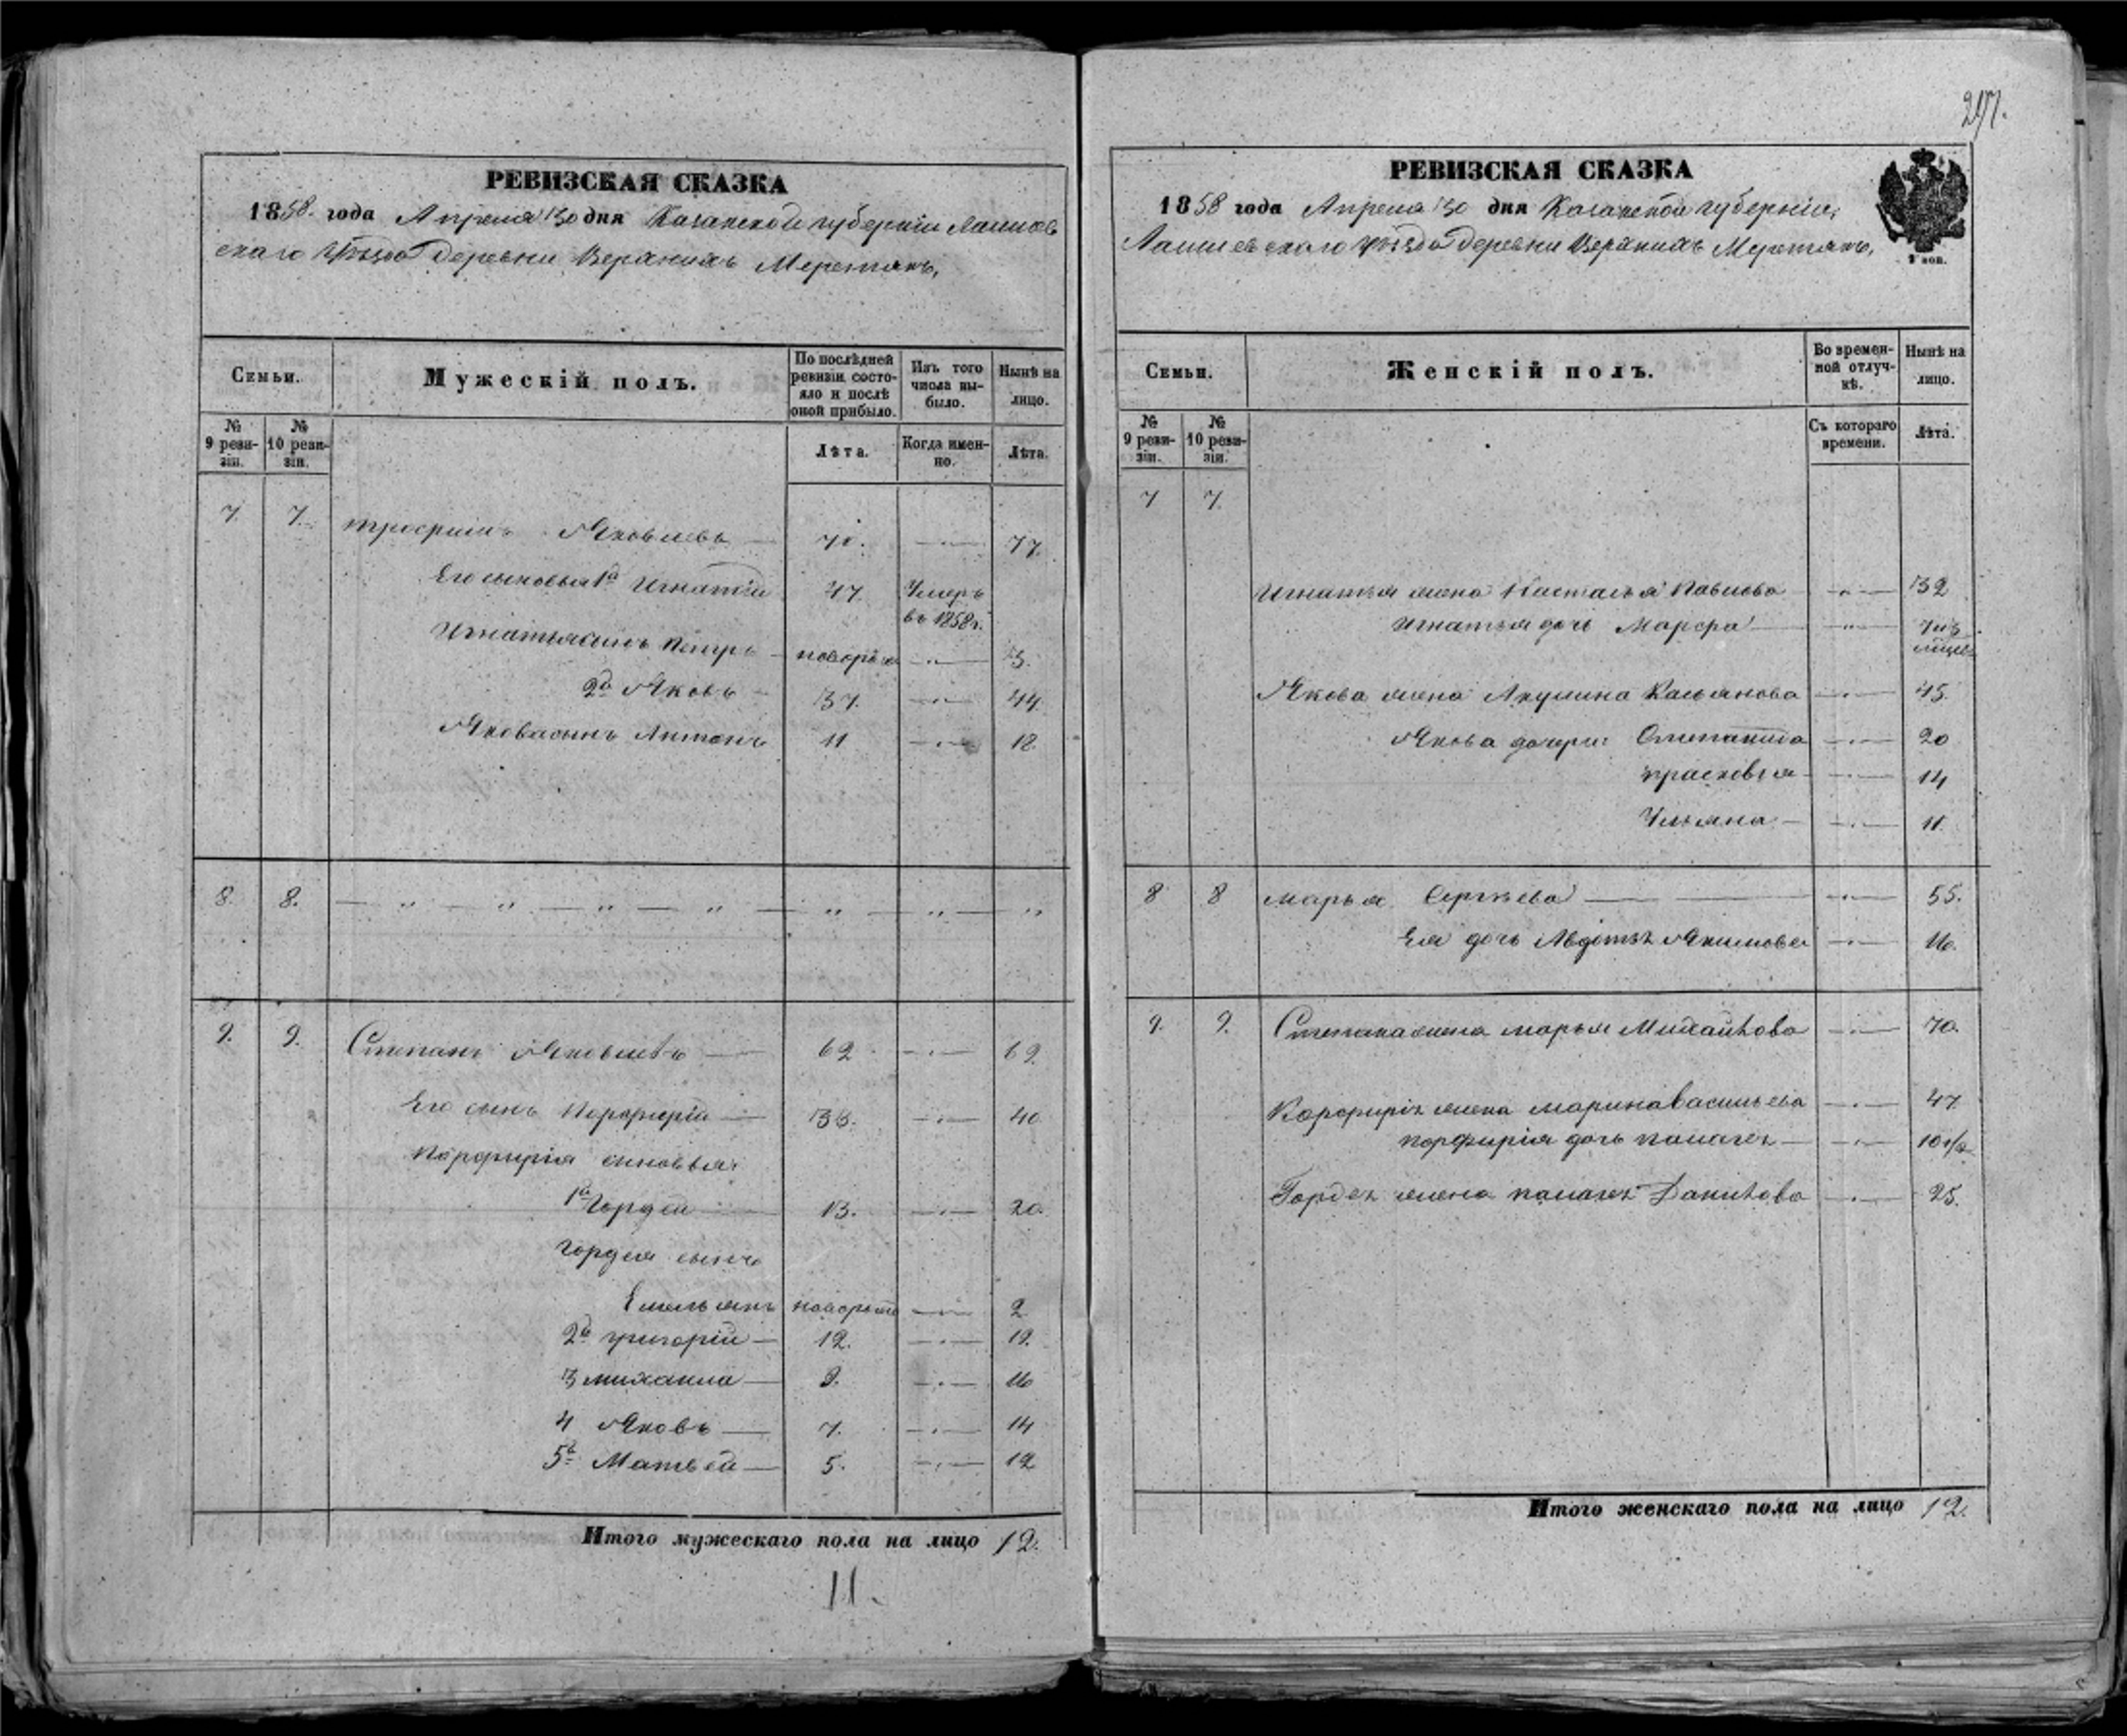 297.
РЕВИЗСКАЯ СКАЗКА
1858. года Апреля 30 дня Казанской губерніи Лаишев
скаго уѣзда деревни Верхнихъ Меретякъ,
Семьи.
Мужескій полъ.
По послѣдней ревизіи состояло и послѣ оной прибыло.
Изъ того числа выбыло.
Нынѣ на лицо.
№ 9 ревизіи.
№ 10 ревизіи.
Лѣта.
Когда именно.
Лѣта.
7. 7. Трофимъ Яковлевъ 70. 77.
Его сыновья 1й Игнатій 47. Умеръ въ 1858г.
Игнатья сынъ Петръ новорож 3.
2й Яковъ 37. 44.
Якова сынъ Антонъ 11 18
8. 8.
9. 9. Степанъ Яковлевъ 62 69.
Его сынъ Порфирій 33. 40
Порфирія сыновья:
1й Гордей 13. 20.
Гордея сынъ
Емельянъ новорож 2
2й Григорій 12. 19.
3 Михаила 9. 16
4 Яковъ 7. 14
5й Матвей 5. 12
Итого мужескаго пола на лицо 12.
11.
РЕВИЗСКАЯ СКАЗКА
1858 года Апреля 30 дня Казанской губерніи,
Лаишевскаго уѣзда деревни Верхнихъ Меретякъ,
Семьи.
Женскій полъ.
Во временной отлучкѣ.
Нынѣ на лицо.
№ 9 ревизіи.
№ 10 ревизіи.
Съ котораго времени.
Лѣта.
7 7.
Игнатья жена Настасья Павлова 32
Игнатья дочь Марфа
Якова жена Акулина Касьянова 45.
Якова дочери: Степанида 20
Прасковья 14
Ульяна 11.
8 8 Марья Сергѣева 55.
Ея дочь Авдотья Якимова 16.
9. 9. Степана жена Марья Михайлова 70.
Порфирія жена Марина Васильева 47
Порфирія дочь Палагея 10 1/2
Гордея жена Палагея Данилова 25.
Итого женскаго пола на лицо 12.